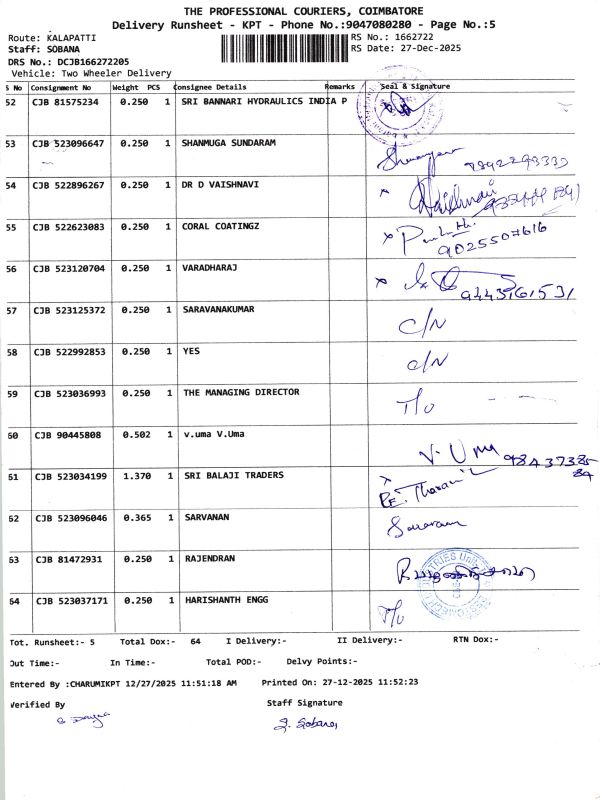 THE PROFESSIONAL COURIERS, COIMBATORE
Delivery Runsheet - KPT - Phone No.:9047080280 - Page No.:5
Route: KALAPATTI
RS No.: 1662722
Staff: SOBANA
RS Date: 27-Dec-2025
DRS No.: DCJB166272205
Vehicle: Two Wheeler Delivery
S No Consignment No Weight PCS Consignee Details Remarks Seal & Signature
52 CJB 81575234 0.250 1 SRI BANNARI HYDRAULICS INDIA P
53 CJB 523096647 0.250 1 SHANMUGA SUNDARAM
54 CJB 522896267 0.250 1 DR D VAISHNAVI Vaishnavi
55 CJB 522623083 0.250 1 CORAL COATINGZ 9025507616
56 CJB 523120704 0.250 1 VARADHARAJ 9443161531
57 CJB 523125372 0.250 1 SARAVANAKUMAR C/N
58 CJB 522992853 0.250 1 YES C/N
59 CJB 523036993 0.250 1 THE MANAGING DIRECTOR T/U
60 CJB 90445808 0.502 1 v.uma V.Uma V. Uma 9843738584
61 CJB 523034199 1.370 1 SRI BALAJI TRADERS
62 CJB 523096046 0.365 1 SARVANAN
63 CJB 81472931 0.250 1 RAJENDRAN
64 CJB 523037171 0.250 1 HARISHANTH ENGG T/U
Tot. Runsheet:- 5 Total Dox:- 64 I Delivery:- II Delivery:- RTN Dox:-
Out Time:- In Time:- Total POD:- Delvy Points:-
Entered By :CHARUMIKPT 12/27/2025 11:51:18 AM Printed On: 27-12-2025 11:52:23
Verified By Staff Signature
S. Sobana